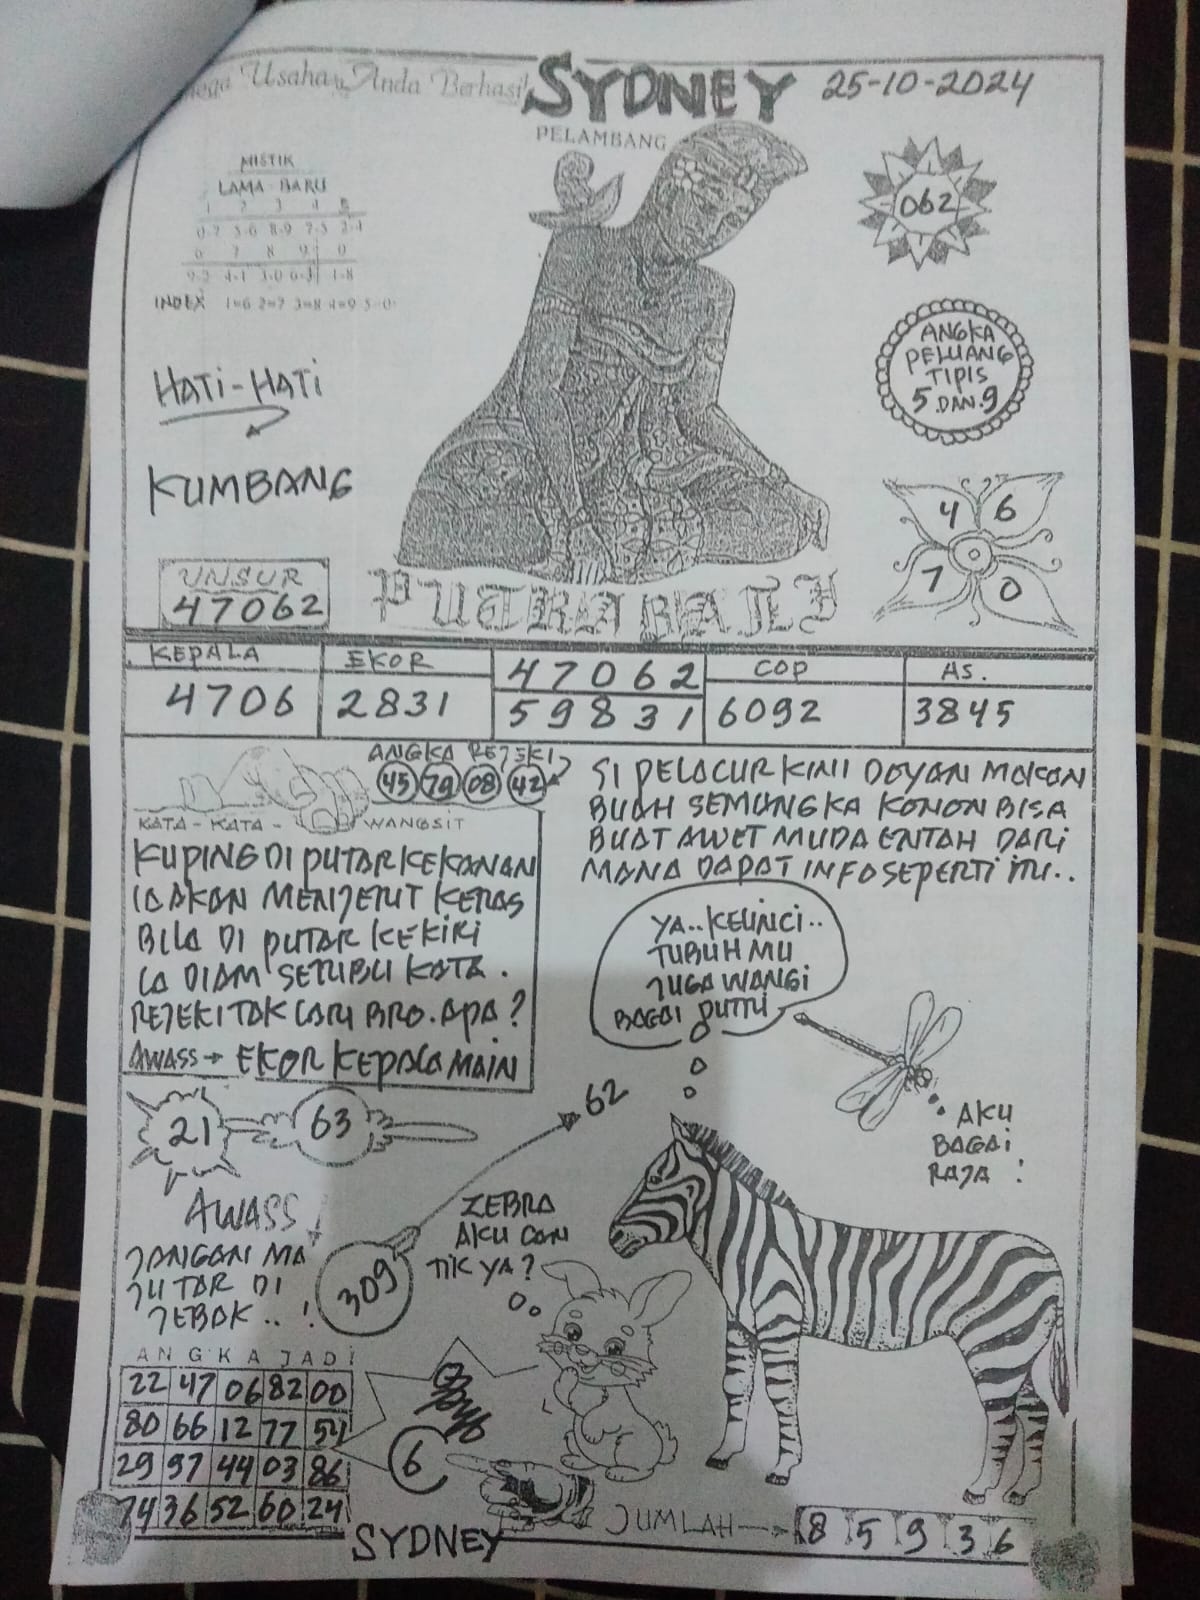 Usaha Anda Berhasil
SYDNEY
25-10-2024
PELAMBANG
MISTIK
LAMA - BARU
1 2 3 4 5
0-7 5-6 8-9 7-5 2-4
6 7 8 9 0
9-2 4-1 3-0 6-3 1-8
INDEX 1=6 2=7 3=8 4=9 5=0
062
ANGKA
PELUANG
TIPIS
5 DAN 9
HATI-HATI
KUMBANG
4 6
7 0
UNSUR
47062
PUTRA BALI
KEPALA EKOR 47062 COP AS.
4706 2831 59831 6092 3845
ANGKA REJEKI
45 79 08 42
KATA - KATA - WANGSIT
KUPING DI PUTAR KEKANAN
IA AKAN MENJERIT KERAS
BILA DI PUTAR KEKIRI
IA DIAM SERIBU KATA.
REJEKI TAK LARI BRO. APA?
AWASS → EKOR KEPALA MAIN
SI PELACUR KINI DOYAN MAKAN
BUAH SEMANGKA KONON BISA
BUAT AWET MUDA ENTAH DARI
MANA DAPAT INFO SEPERTI ITU..
YA.. KELINCI..
TUBUHMU
JUGA WANGI
BAGAI PUTRI
AKU
BAGAI
RAJA !
21 63
62
AWASS
JANGAN MA
JU TAR DI
JEBAK .. !
309
ZEBRA
AKU CAN
TIK YA?
ANGKA JADI
22 47 06 82 00
80 66 12 77 54
29 97 44 03 86
74 36 52 60 24
6
JUMLAH → 8 5 9 3 6
SYDNEY